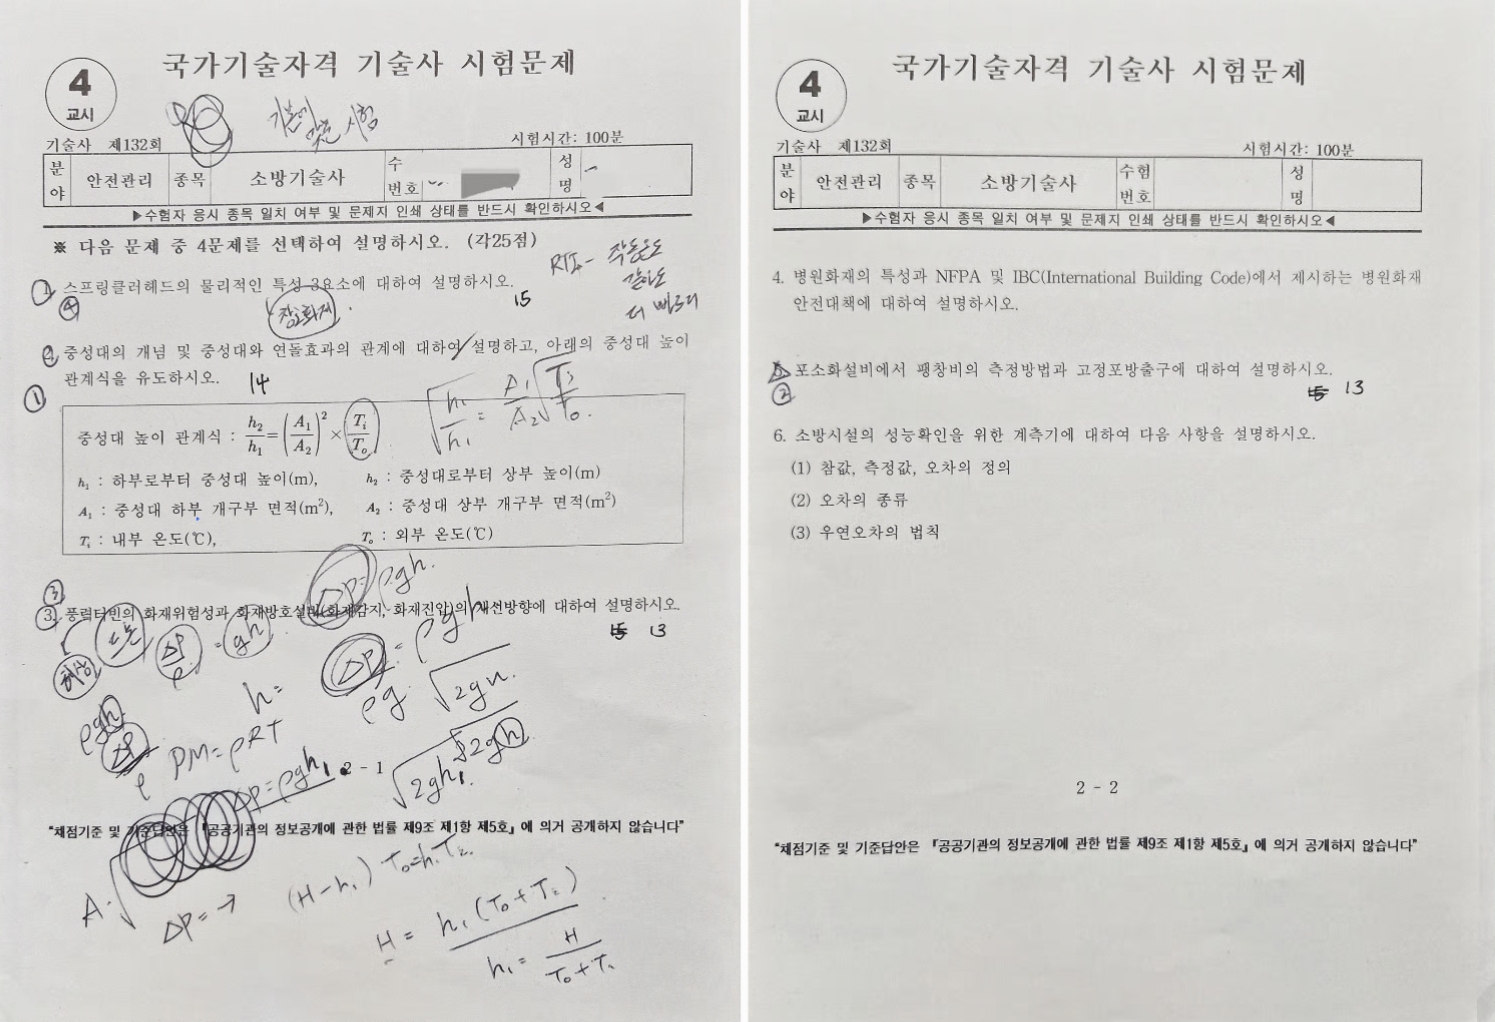 국가기술자격 기술사 시험문제
4
교시
기본에
맞춘 시험
기술사 제132회
시험시간: 100분
분야 안전관리 종목 소방기술사 수 번호 성명
▶수험자 응시 종목 일치 여부 및 문제지 인쇄 상태를 반드시 확인하시오◀
※ 다음 문제 중 4문제를 선택하여 설명하시오. (각25점)
RTI- 작동온도
같아도
더 빠르리
스프링클러헤드의 물리적인 특성 3요소에 대하여 설명하시오.
④
15
중성대의 개념 및 중성대와 연돌효과의 관계에 대하여 설명하고, 아래의 중성대 높이
관계식을 유도하시오.
14
①
중성대 높이 관계식 : h₂/h₁=(A₁/A₂)²×Tᵢ/Tₒ
h₁ : 하부로부터 중성대 높이(m), h₂ : 중성대로부터 상부 높이(m)
A₁ : 중성대 하부 개구부 면적(m²), A₂ : 중성대 상부 개구부 면적(m²)
Tᵢ : 내부 온도(℃), Tₒ : 외부 온도(℃)
ΔP=ρgh.
③
3. 풍력터빈의 화재위험성과 화재방호설비(화재감지, 화재진압)의 개선방향에 대하여 설명하시오.
13
ΔP/ρ = gh
ΔP = ρgh
h=
ρg √2gh.
ρgh
ΔP
ρ
PM=ρRT
ΔP=ρgh₁
2 - 1
√2gh₁
√2gh
"채점기준 및 기준답안은 『공공기관의 정보공개에 관한 법률 제9조 제1항 제5호』에 의거 공개하지 않습니다"
A·√
ΔP= →
(H-h₁) T₀=h₁T₂
H = h₁(T₀+T₂)
h₁= H/T₀+T₁
국가기술자격 기술사 시험문제
4
교시
기술사 제132회
시험시간: 100분
분야 안전관리 종목 소방기술사 수험번호 성명
▶수험자 응시 종목 일치 여부 및 문제지 인쇄 상태를 반드시 확인하시오◀
4. 병원화재의 특성과 NFPA 및 IBC(International Building Code)에서 제시하는 병원화재
안전대책에 대하여 설명하시오.
5. 포소화설비에서 팽창비의 측정방법과 고정포방출구에 대하여 설명하시오.
②
13
6. 소방시설의 성능확인을 위한 계측기에 대하여 다음 사항을 설명하시오.
(1) 참값, 측정값, 오차의 정의
(2) 오차의 종류
(3) 우연오차의 법칙
2 - 2
"채점기준 및 기준답안은 『공공기관의 정보공개에 관한 법률 제9조 제1항 제5호』에 의거 공개하지 않습니다"